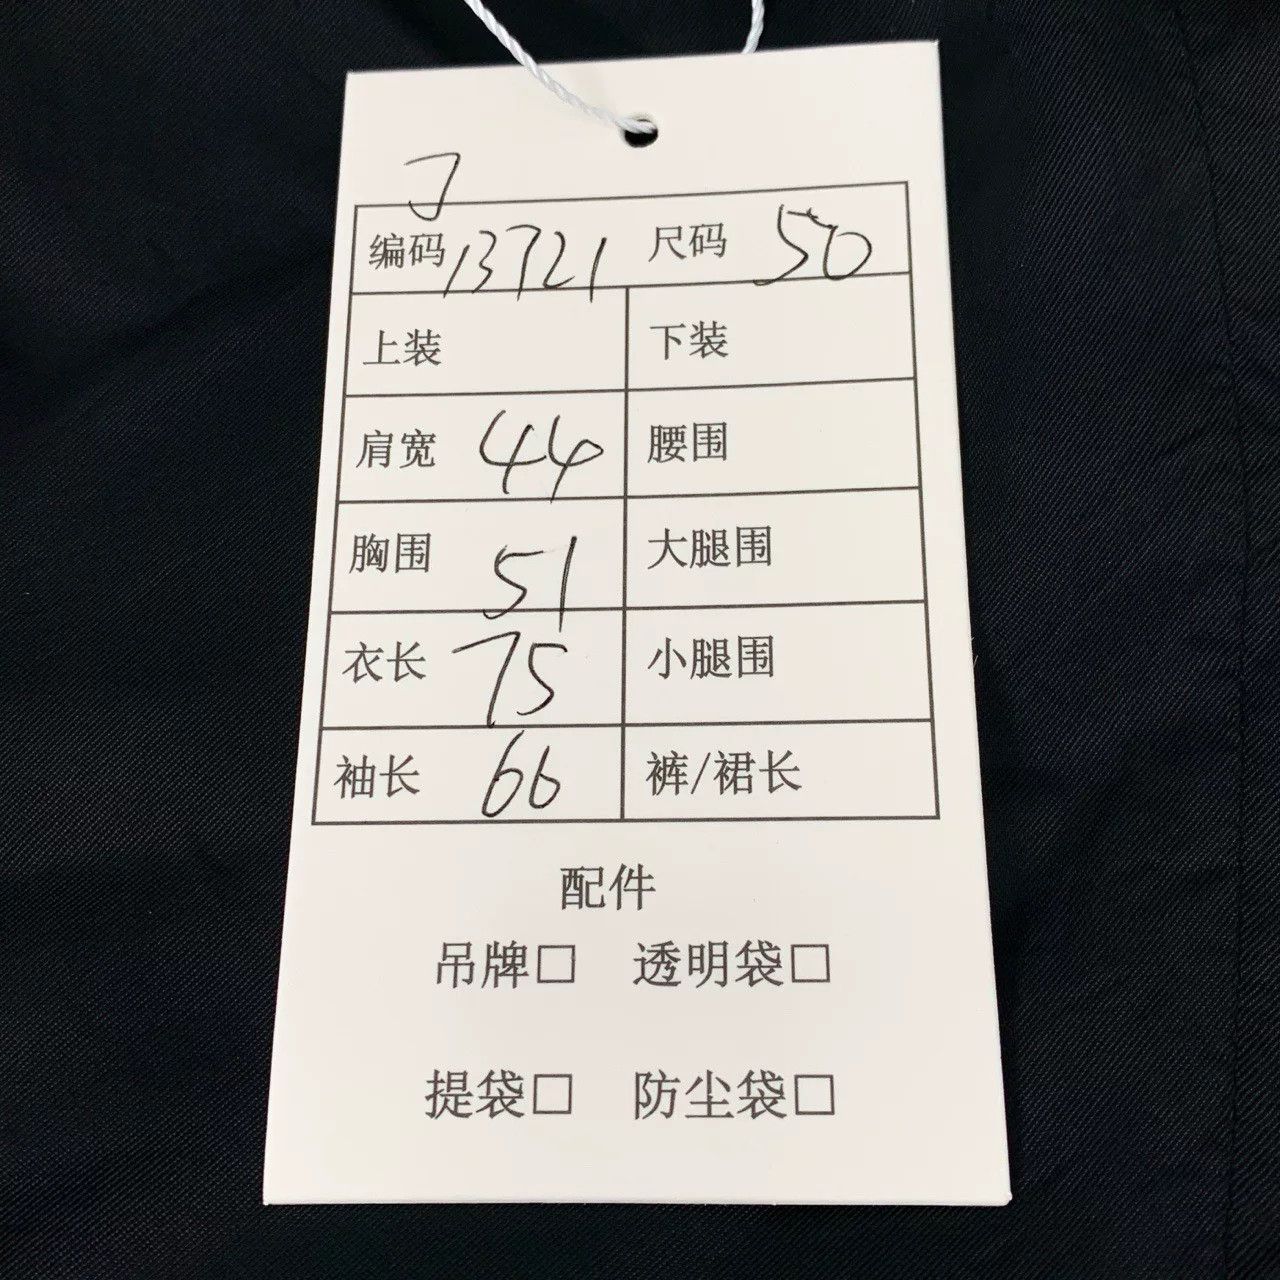 J
编码 13721 尺码 50
上装 下装
肩宽 44 腰围
胸围 51 大腿围
衣长 75 小腿围
袖长 66 裤/裙长
配件
吊牌□ 透明袋□
提袋□ 防尘袋□